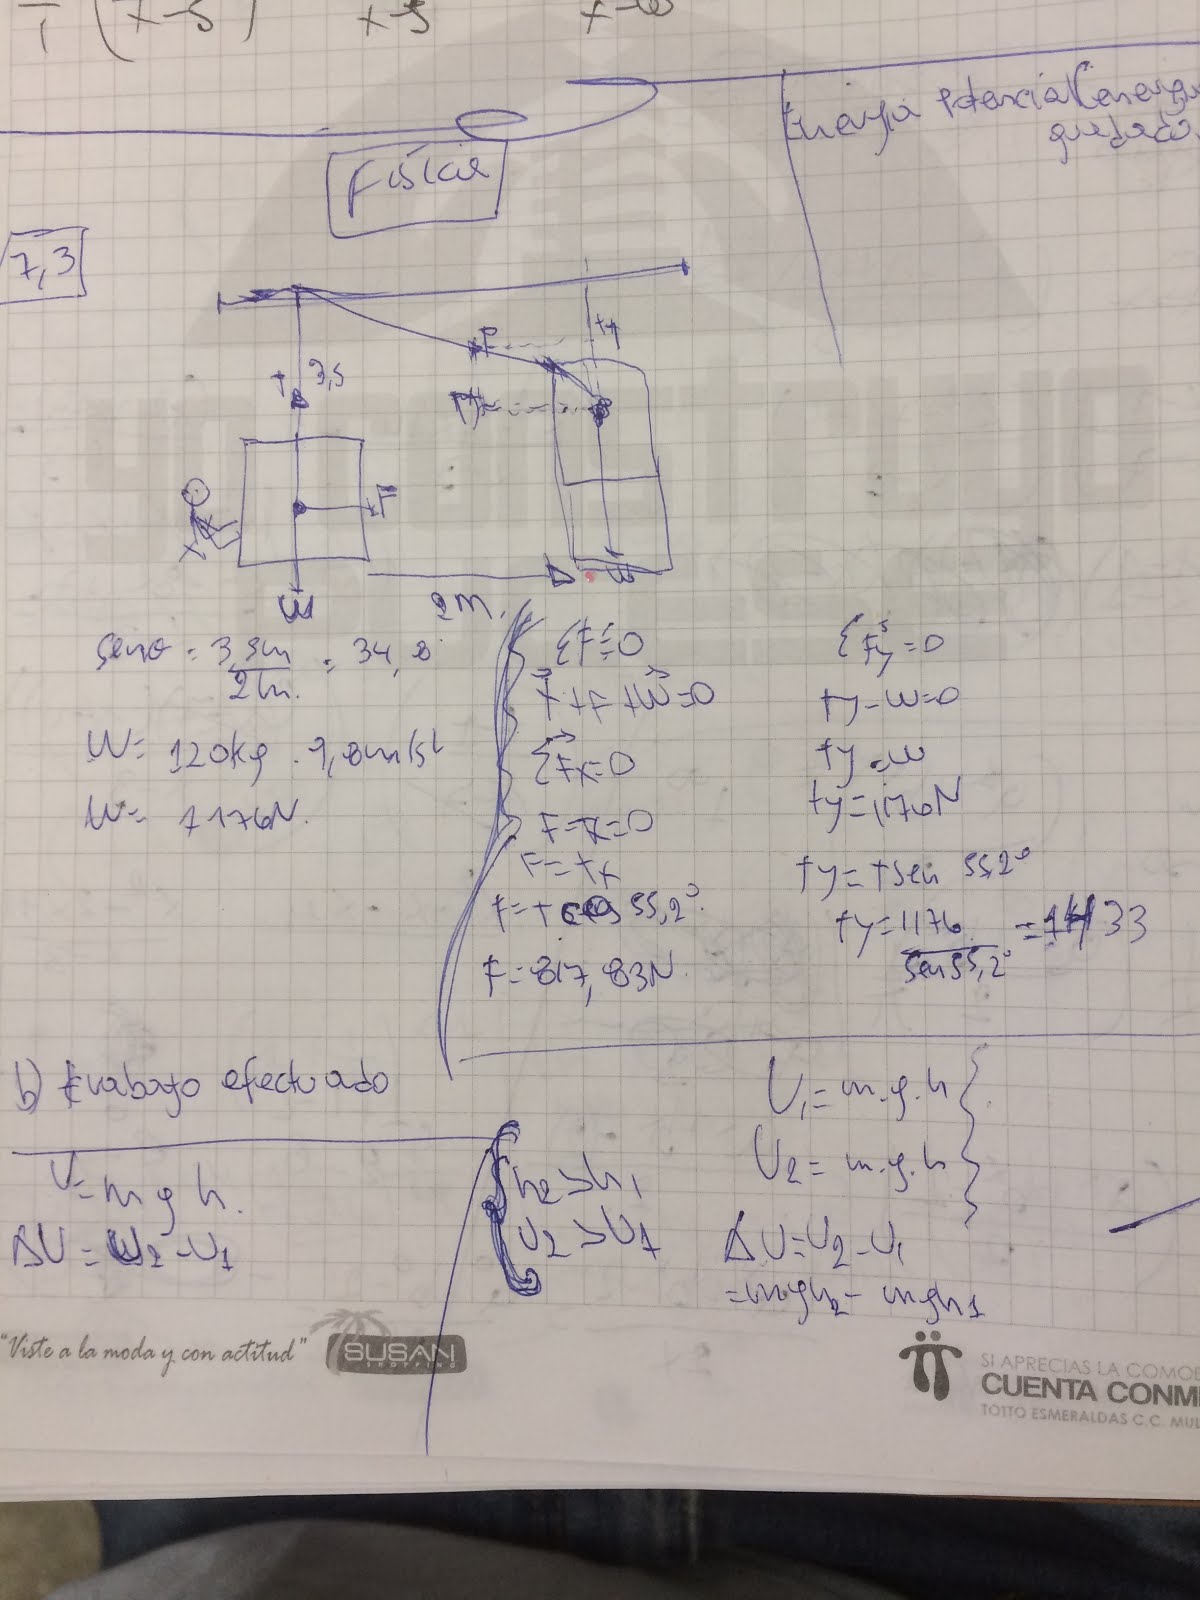 (x-5) x-5
Energía potencial (energía
quedado
Física
7,3
T 3,5
F
Ty
F
W
W
2m.
senθ = 3,5m = 34,8
2m.
W= 120kg . 9,8m/s²
W= 1176N.
ΣF=0
T+F+W=0
ΣFx=0
F-Tx=0
F=Tx
F=T cos 55,2°.
F=817,83N.
ΣFy=0
Ty-W=0
Ty=W
Ty=1176N
Ty=Tsen 55,2°
Ty=1176 = 1433
sen55,2°
b) trabajo efectuado
U=m g h.
ΔU = U2-U1
h2>h1
U2>U1
U1= m.g.h
U2= m.g.h
ΔU=U2-U1
=mgh2- mgh1
"Viste a la moda y con actitud"
SUSAN
SHOPPING
SI APRECIAS LA COMOD
CUENTA CONMI
TOTTO ESMERALDAS C.C. MUL